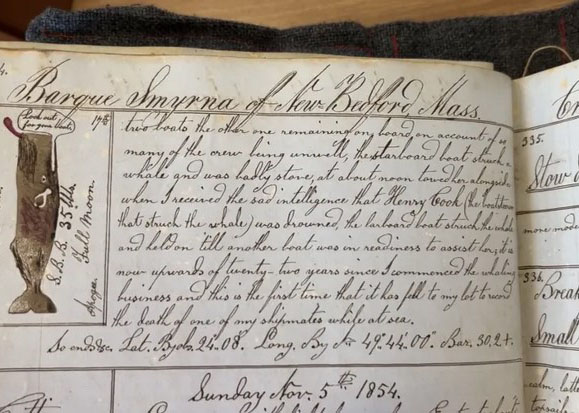 Barque Smyrna of New Bedford Mass
Look out
for your Boats
17th
S. B. B. 35 bbls.
Full Moon.
two boats the other one remaining on board, on account of so
many of the crew being unwell, the starboard boat struck a
whale and was badly stove, at about noon towed her alongside
when I received the sad intelligence that Henry Cook (the boatsteerer
that struck the whale) was drowned, the larboard boat struck the whale
and held on till another boat was in readiness to assist her, it is
now upwards of twenty-two years since I commenced the whaling
business and this is the first time that it has fell to my lot to record
the death of one of my shipmates while at sea.
So ends &c. Lat. By obs. 24.08. Long. By 49°.44.00". Bar. 30,2+.
Sunday Nov. 5th 1854.
335.
Stow
more mode
336.
Break
Small
calm, latt
topsail